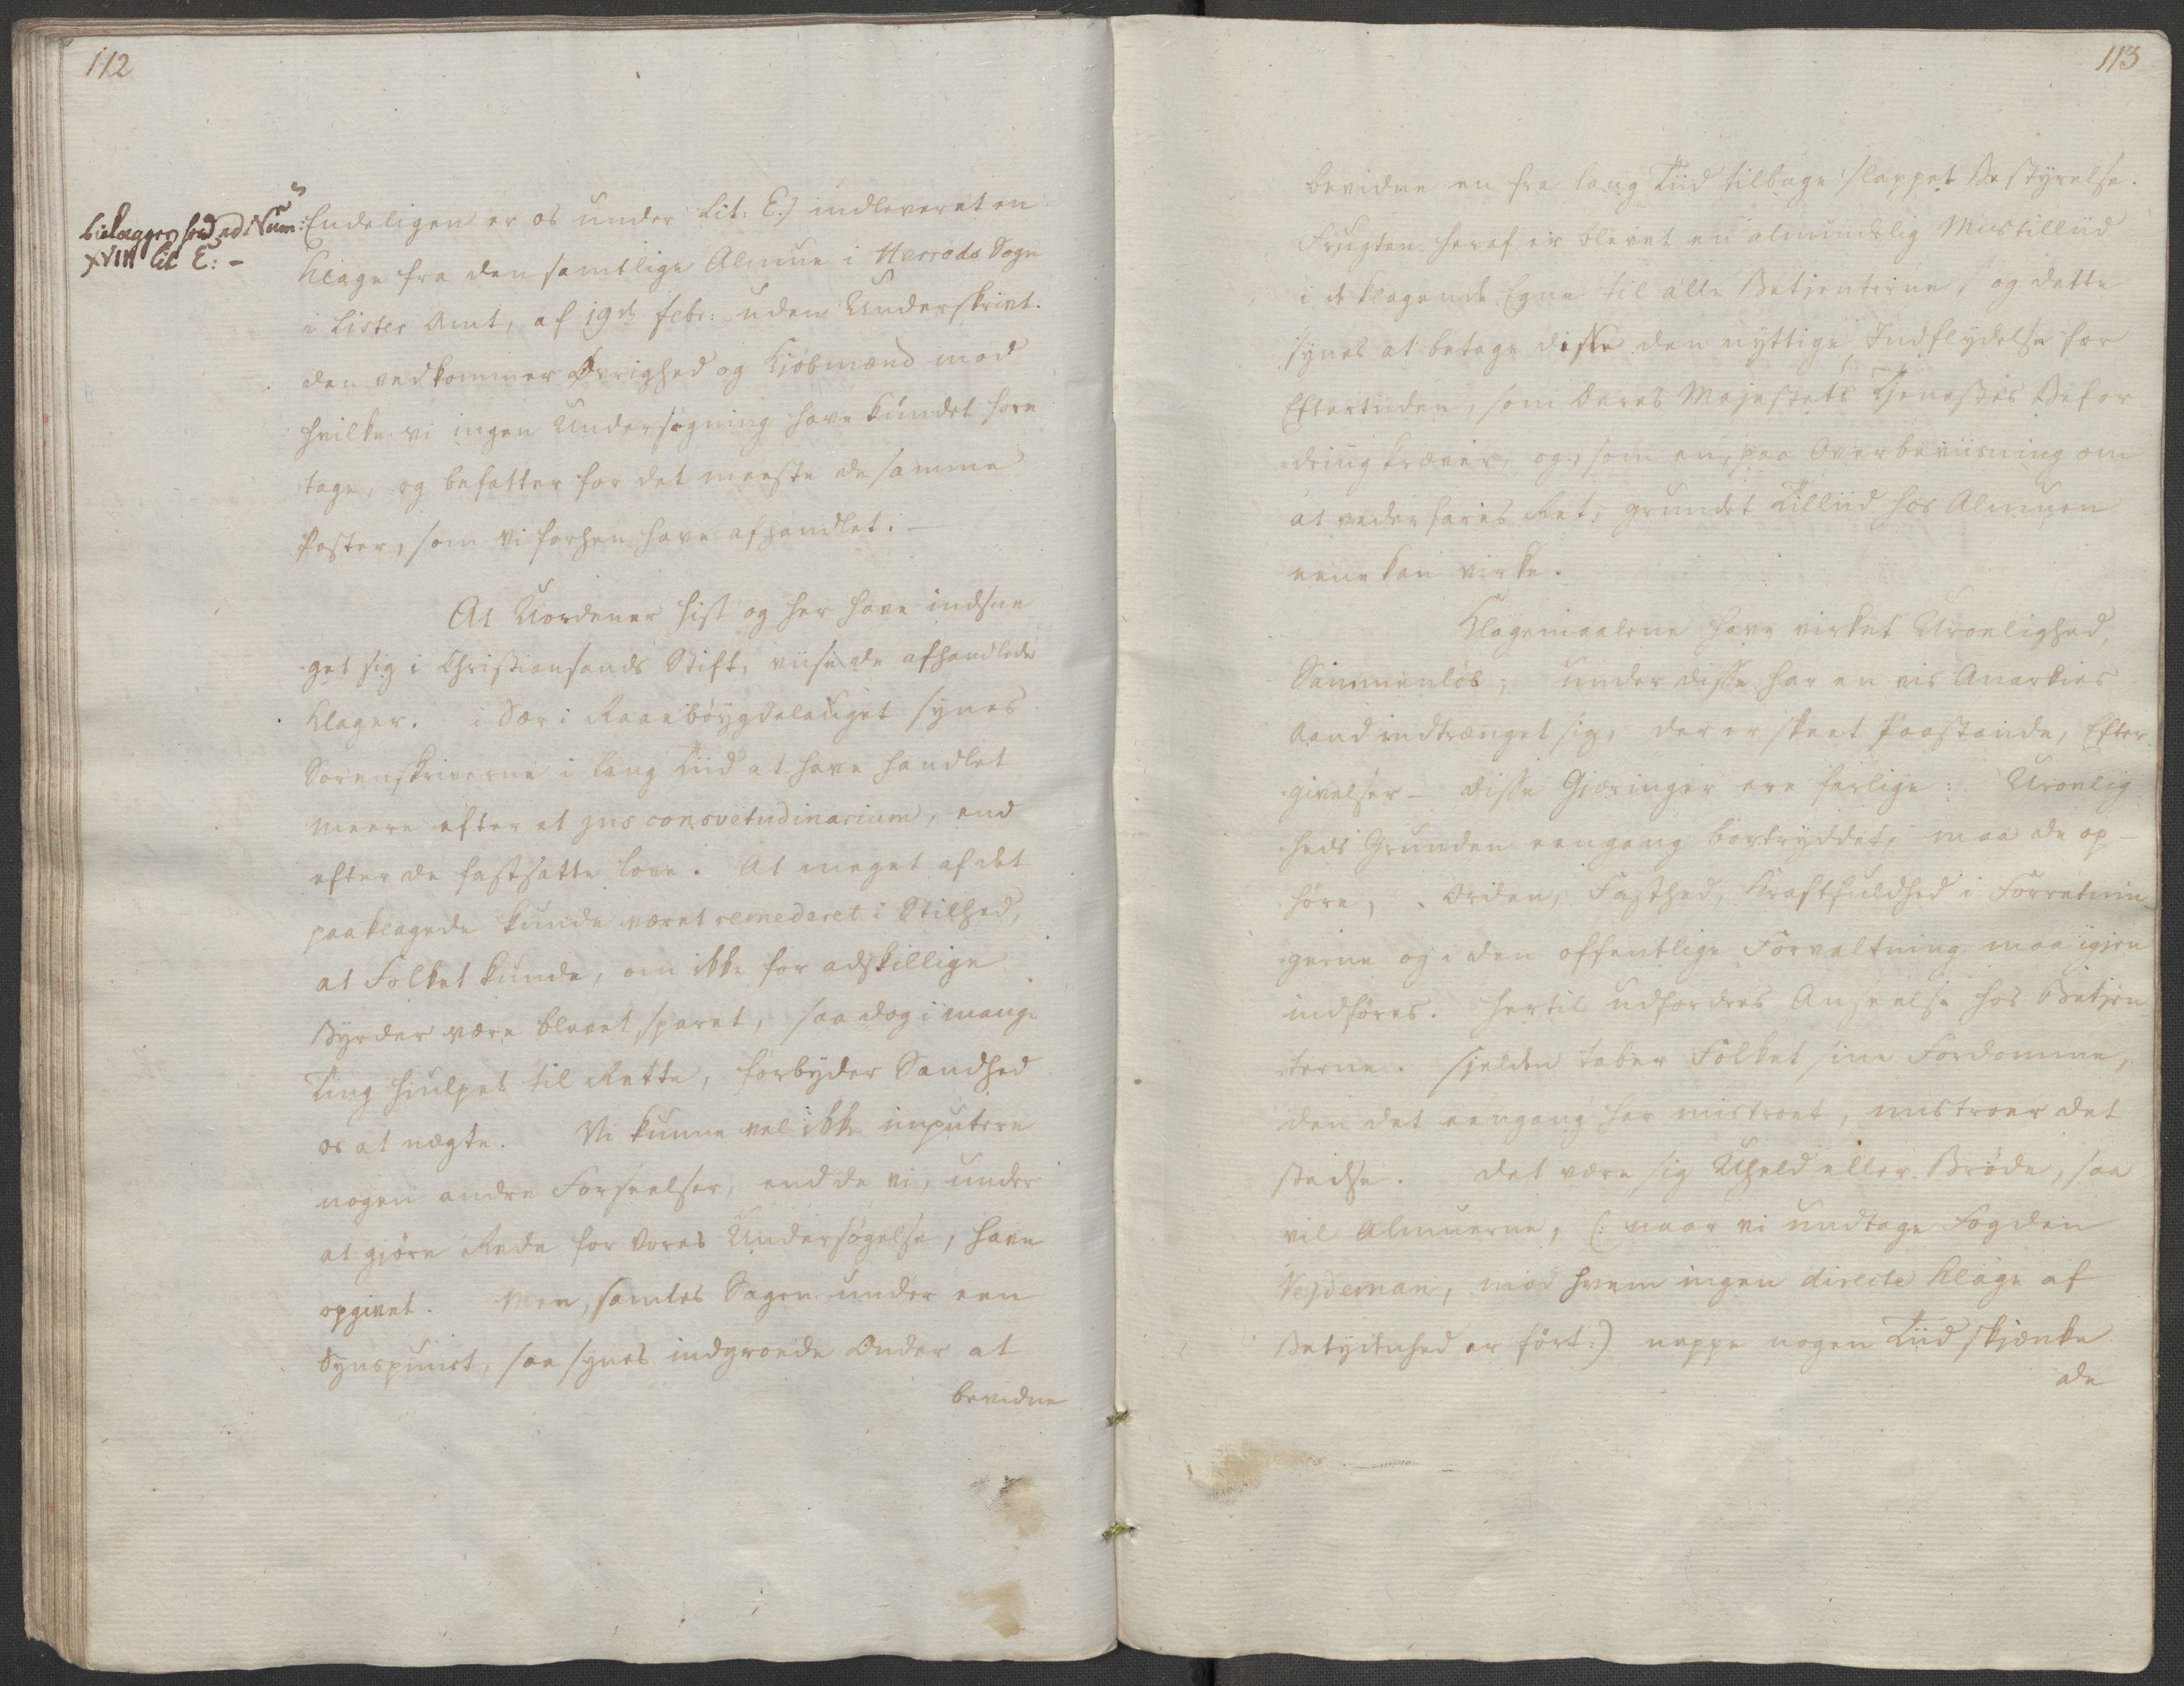 112
bielagges sud ad Num:
XVIII lit E: -
Endeligen er os under Lit: E.) indleveret en
Klage fra den samtlige Almue i Herrods Sogn
i Lister Amt, af 19de febr: uden Underskrivt.
den vedkommer Øvrighed og Kjøbmænd mod
hvilke vi ingen Undersøgning have kundet fore
tage, og befatter for det meeste de samme
Poster, som vi forhen have afhandlet. —
At Uordener hist og her have indsne
get sig i Christiansands Stift, viise de afhandlede
Klager. i Sær i Raaebøygdelauget synes
Sorenskriverne i lang Tiid at have handlet
meere efter et jus consvetudinarium, end
efter de fastsatte Love. At meget af det
paaklagede kunde været remederet i Stilhed,
at Folket kunde, om ikke for adskillige
Byrder være blevet sparet, saa dog i mange
Ting hiulpet til Rette, forbyder Sandhed
os at nægte. Vi kunne vel ikke imputere
nogen andre Forseelser, end de vi, under
at gjøre Rede for vores Undersøgelse, have
opgivet. Men, samles Sagen under een
Synspunct, saa synes indgroede Onder at
bevidne
113
bevidne en fra lang Tiid tilbage slappet Bestyrelse.
Frugten heraf er blevet en almindelig Mistilliid
i de klagende Egne til alle Betjenterne, og dette
synes at betage disse den nyttige Indflydelse for
Eftertiiden, som Deres Majestets Tjenestes Befor
dring kræver, og, som en, paa Overbeviisning om
at vederfares Ret, grundet Tilliid hos Almuen
eene kan virke.
Klagemaalene have virket Uroelighed,
Sammenløb; under disse har en vis Anarkies
Aand indtrænget sig, der er skeet Paastande, Efter
givelser - disse Gjæringer ere farlige: Uroelig
heds Grunden eengang bortryddet, maa de op-
høre, Orden, Fasthed, Kraftfuldhed i Forretnin
gerne og i den offentlige Forvaltning maa igjen
indføres. hertil udfordres Anseelse hos Betjen
terne. sjelden taber Folket sine Fordomme,
den det eengang har mistroet, mistroer det
stedse. det være sig Uheld eller Brøde, saa
vil Almuerne, (: naar vi undtage Fogden
Weydeman, mod hvem ingen directe Klage af
Betydenhed er ført:) neppe nogen Tiid skjænke
de